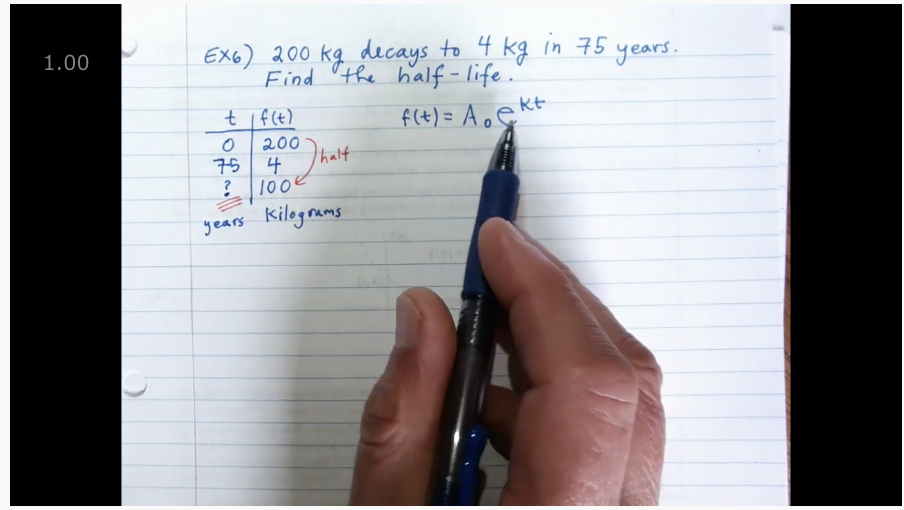 1.00
EX6) 200 kg decays to 4 kg in 75 years.
Find the half-life.
t f(t)
f(t) = A₀ e^kt
0 200
half
75 4
? 100
years Kilograms